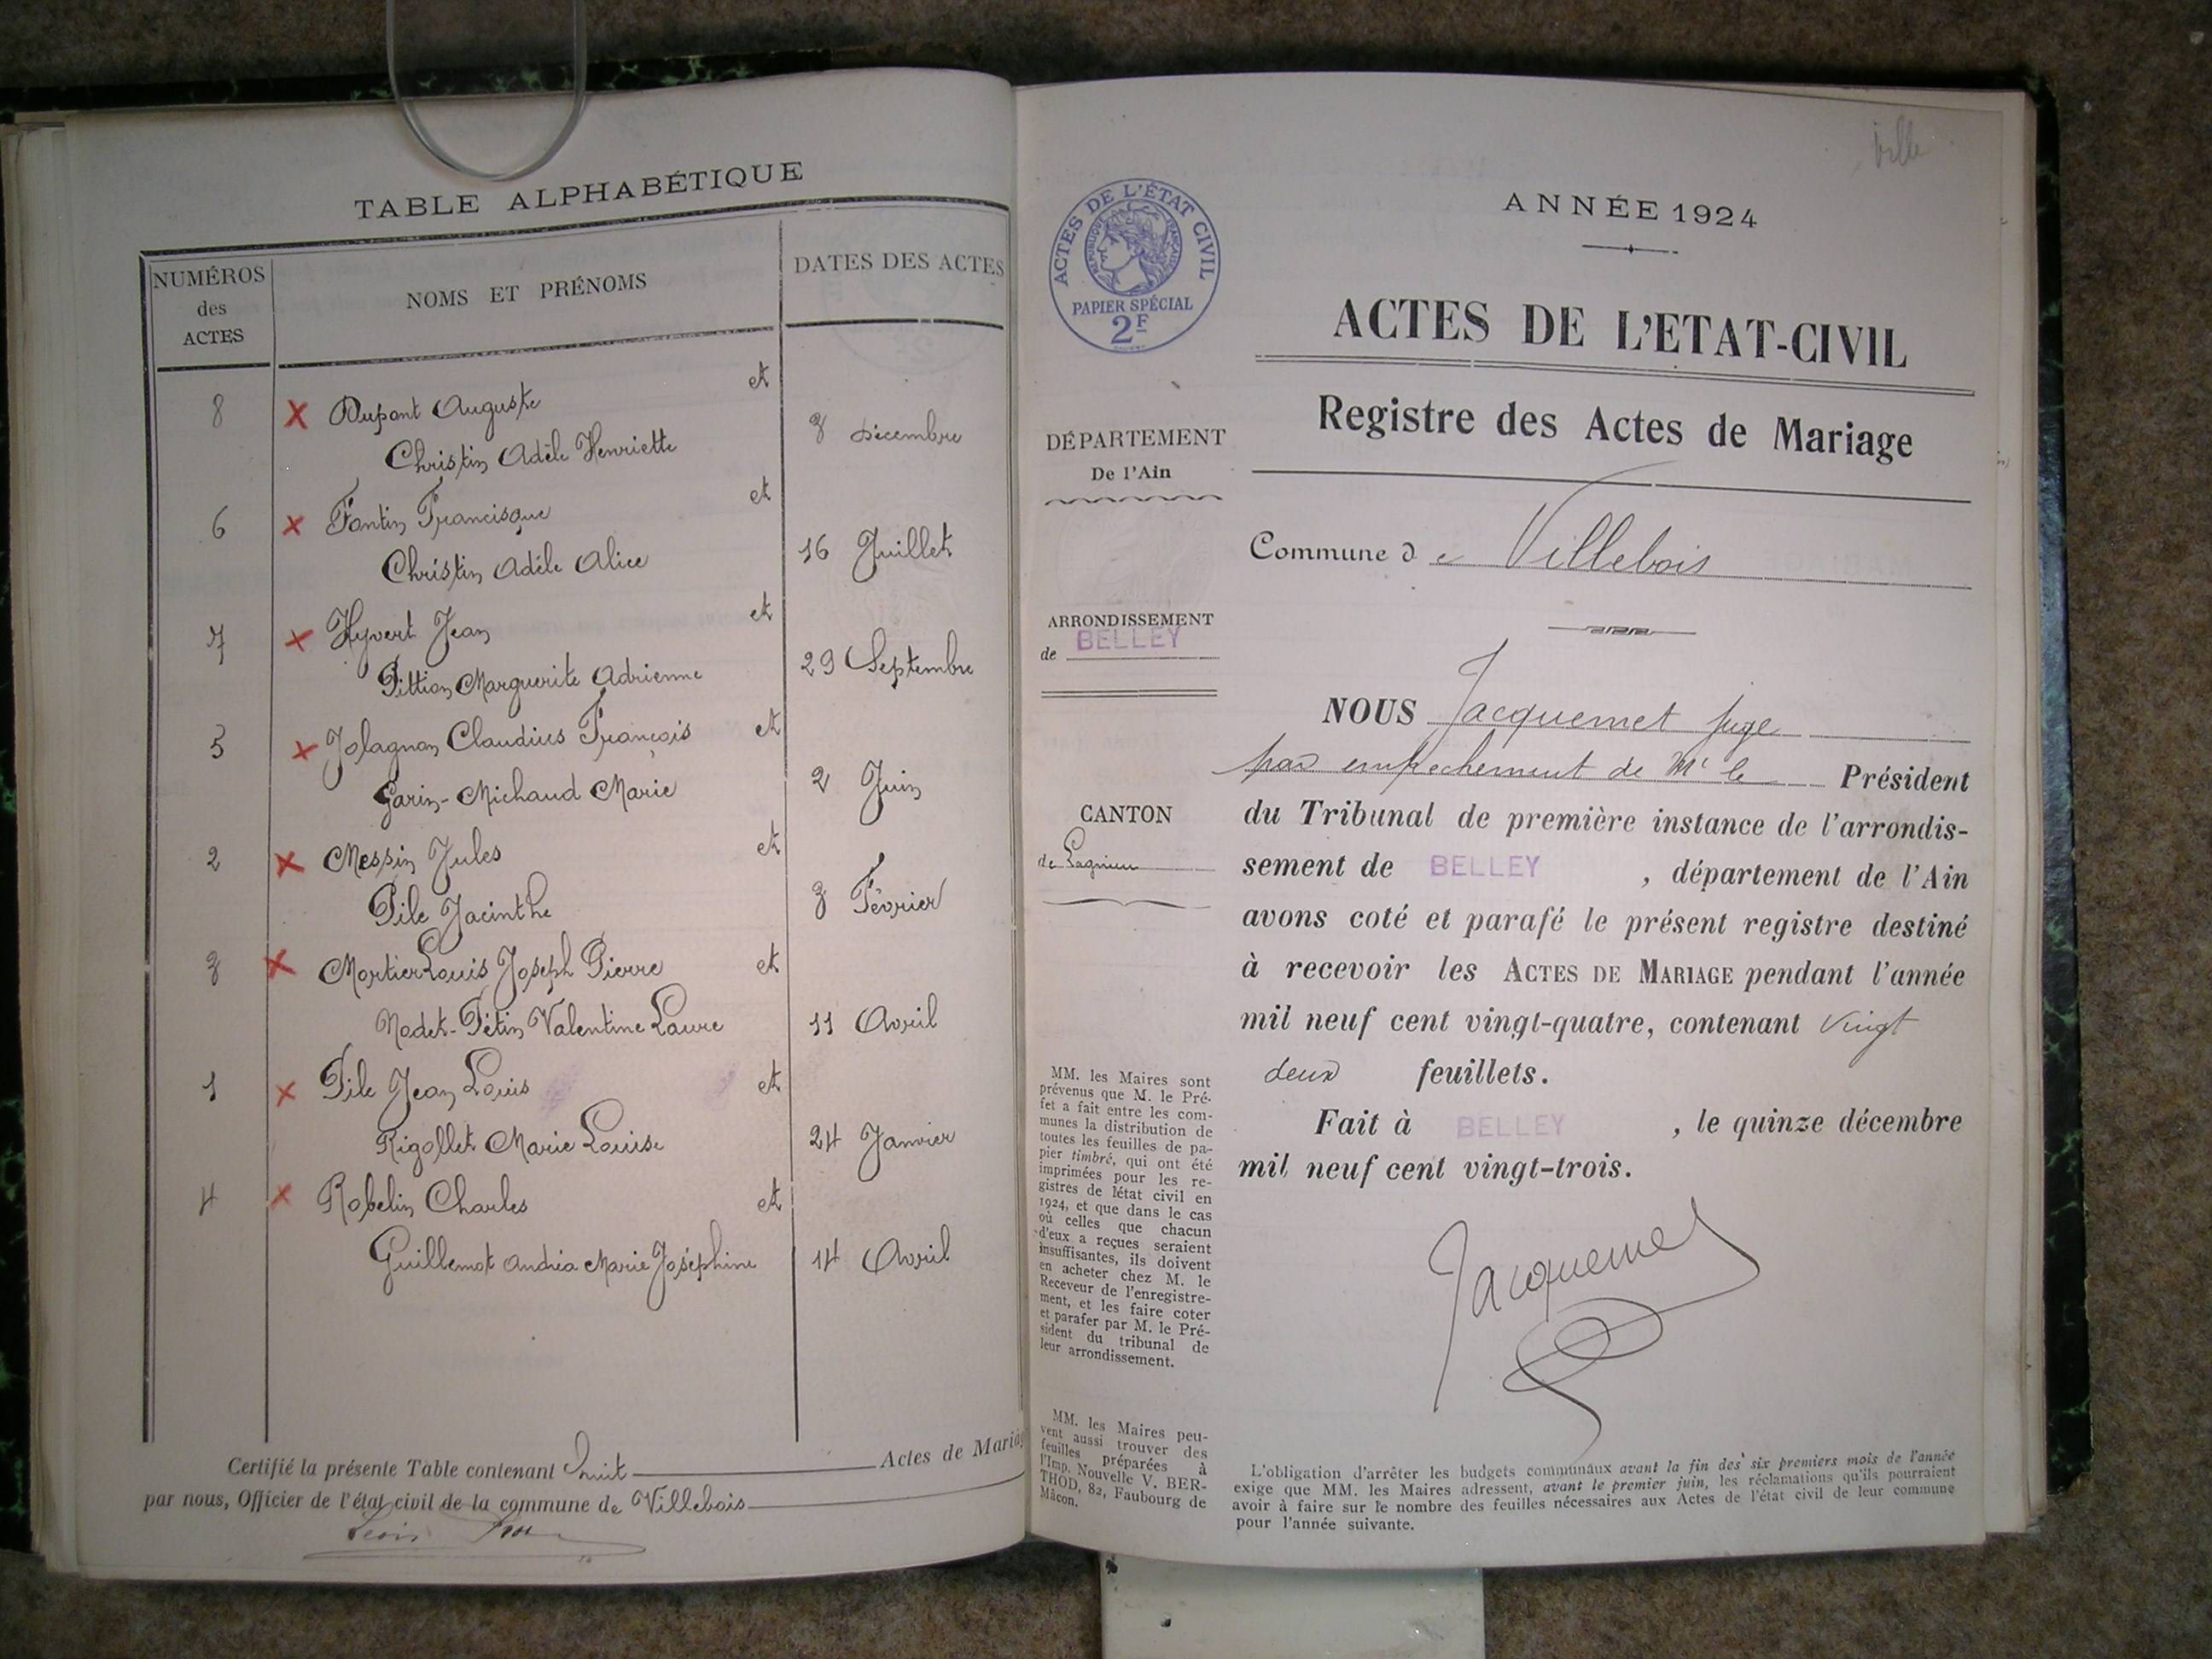 TABLE ALPHABÉTIQUE
NUMÉROS des ACTES
NOMS ET PRÉNOMS
DATES DES ACTES
8 X Dupont Auguste et
Christin Adèle Henriette 8 Décembre
6 X Fontin Francisque et
Christin Adèle Alice 16 Juillet
7 X Hyvert Jean et
Pittion Marguerite Adrienne 29 Septembre
5 X Jolagnon Claudius François et
Garin-Michaud Marie 2 Juin
2 X Messin Jules et
Pile Jacinthe 8 Février
3 X Mortier Louis Joseph Pierre et
Nodet-Pétin Valentine Laure 11 Avril
1 X Pile Jean Louis et
Rigollet Marie Louise 24 Janvier
4 X Robelin Charles et
Guillemot Andréa Marie Joséphine 14 Avril
Certifié la présente Table contenant huit Actes de Maria
par nous, Officier de l'état civil de la commune de Villebois
Ville
ACTES DE L'ÉTAT CIVIL
RÉPUBLIQUE FRANÇAISE
PAPIER SPÉCIAL
2F
ANNÉE 1924
ACTES DE L'ETAT-CIVIL
Registre des Actes de Mariage
DÉPARTEMENT
De l'Ain
Commune de Villebois
ARRONDISSEMENT
de BELLEY
CANTON
de Lagnieu
NOUS Jacquemet juge
par empêchement de Mr le Président
du Tribunal de première instance de l'arrondis-
sement de BELLEY , département de l'Ain
avons coté et parafé le présent registre destiné
à recevoir les ACTES DE MARIAGE pendant l'année
mil neuf cent vingt-quatre, contenant vingt
deux feuillets.
Fait à BELLEY , le quinze décembre
mil neuf cent vingt-trois.
Jacquemet
MM. les Maires sont
prévenus que M. le Pré-
fet a fait entre les com-
munes la distribution de
toutes les feuilles de pa-
pier timbré, qui ont été
imprimées pour les re-
gistres de létat civil en
1924, et que dans le cas
où celles que chacun
d'eux a reçues seraient
insuffisantes, ils doivent
en acheter chez M. le
Receveur de l'enregistre-
ment, et les faire coter
et parafer par M. le Pré-
sident du tribunal de
leur arrondissement.
MM. les Maires peu-
vent aussi trouver des
feuilles préparées à
l'Imp. Nouvelle V. BER-
THOD, 82, Faubourg de
Mâcon.
L'obligation d'arrêter les budgets communaux avant la fin des six premiers mois de l'année
exige que MM. les Maires adressent, avant le premier juin, les réclamations qu'ils pourraient
avoir à faire sur le nombre des feuilles nécessaires aux Actes de l'état civil de leur commune
pour l'année suivante.